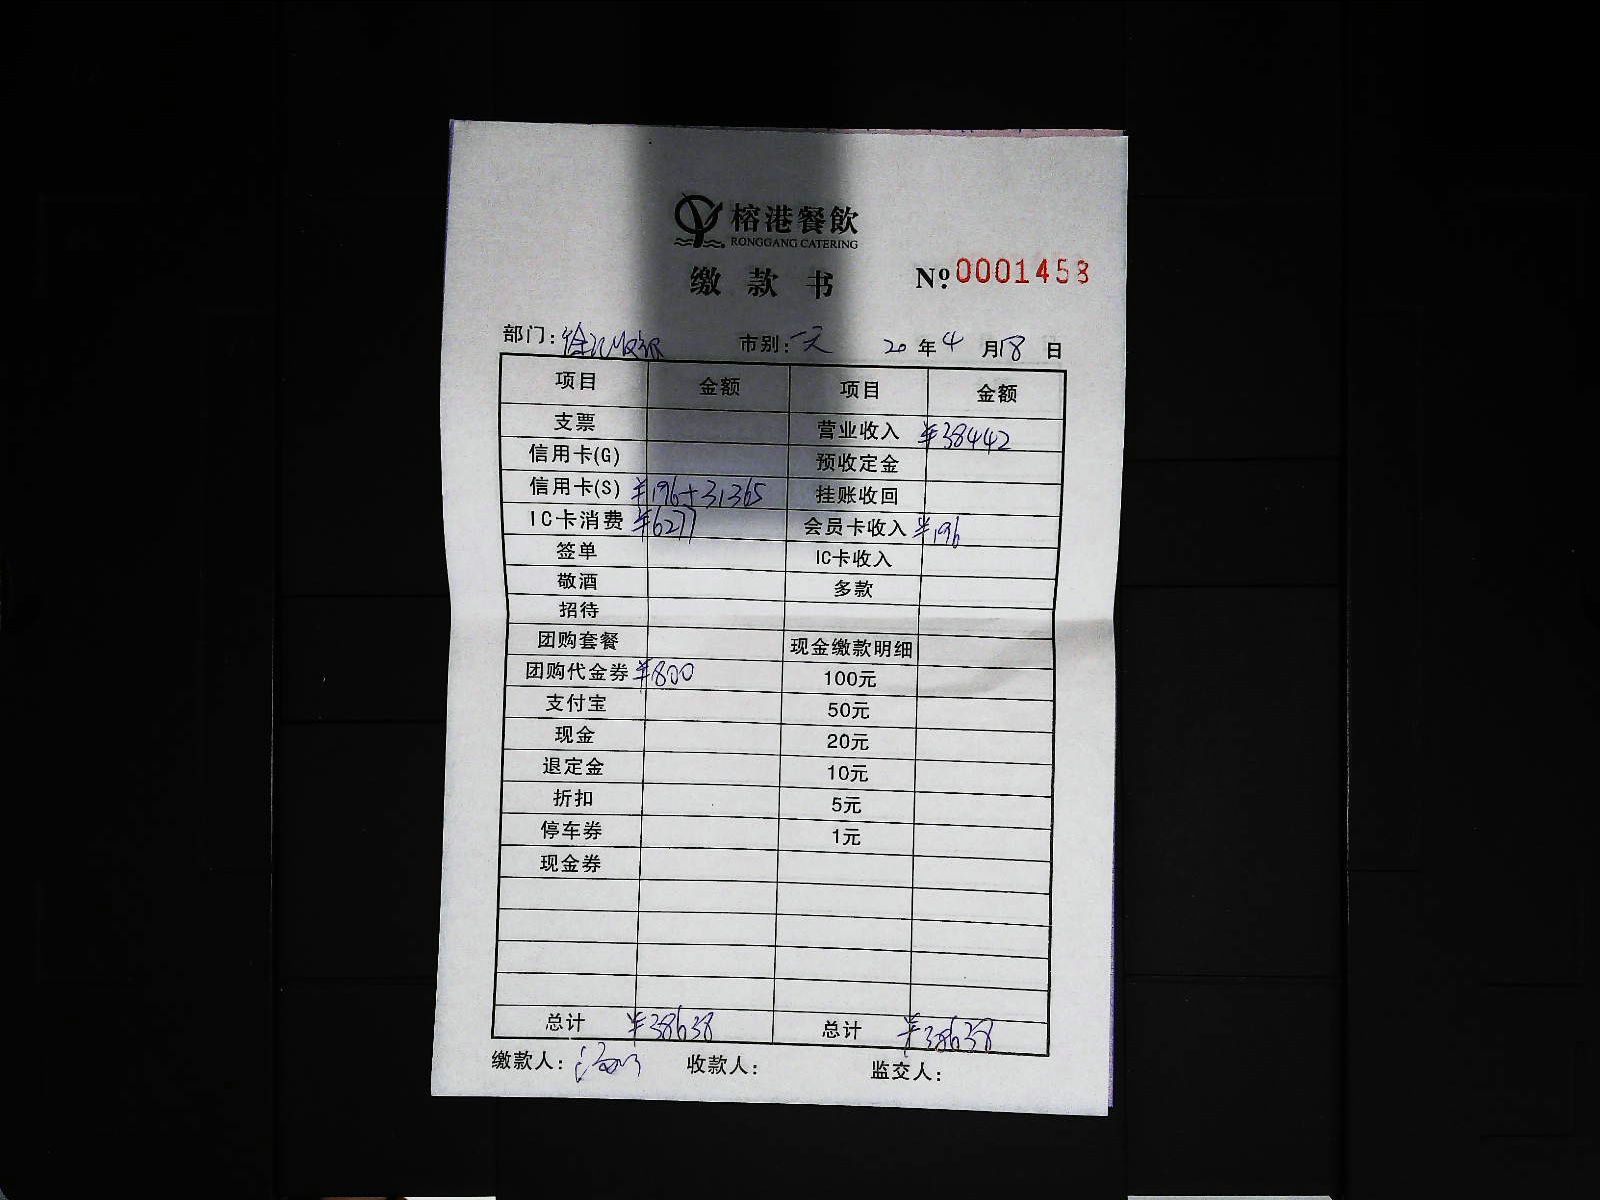 榕港餐飲
RONGGANG CATERING
缴款书 Nº 0001458
部门: 市别: 一天 20 年 4 月 18 日
项目 金额 项目 金额
支票 营业收入 ¥38442
信用卡(G) 预收定金
信用卡(S) ¥196+31365 挂账收回
IC卡消费 ¥6277 会员卡收入 ¥196
签单 IC卡收入
敬酒 多款
招待
团购套餐 现金缴款明细
团购代金券 ¥800 100元
支付宝 50元
现金 20元
退定金 10元
折扣 5元
停车券 1元
现金券
总计 ¥38638 总计 ¥38638
缴款人: 收款人: 监交人: